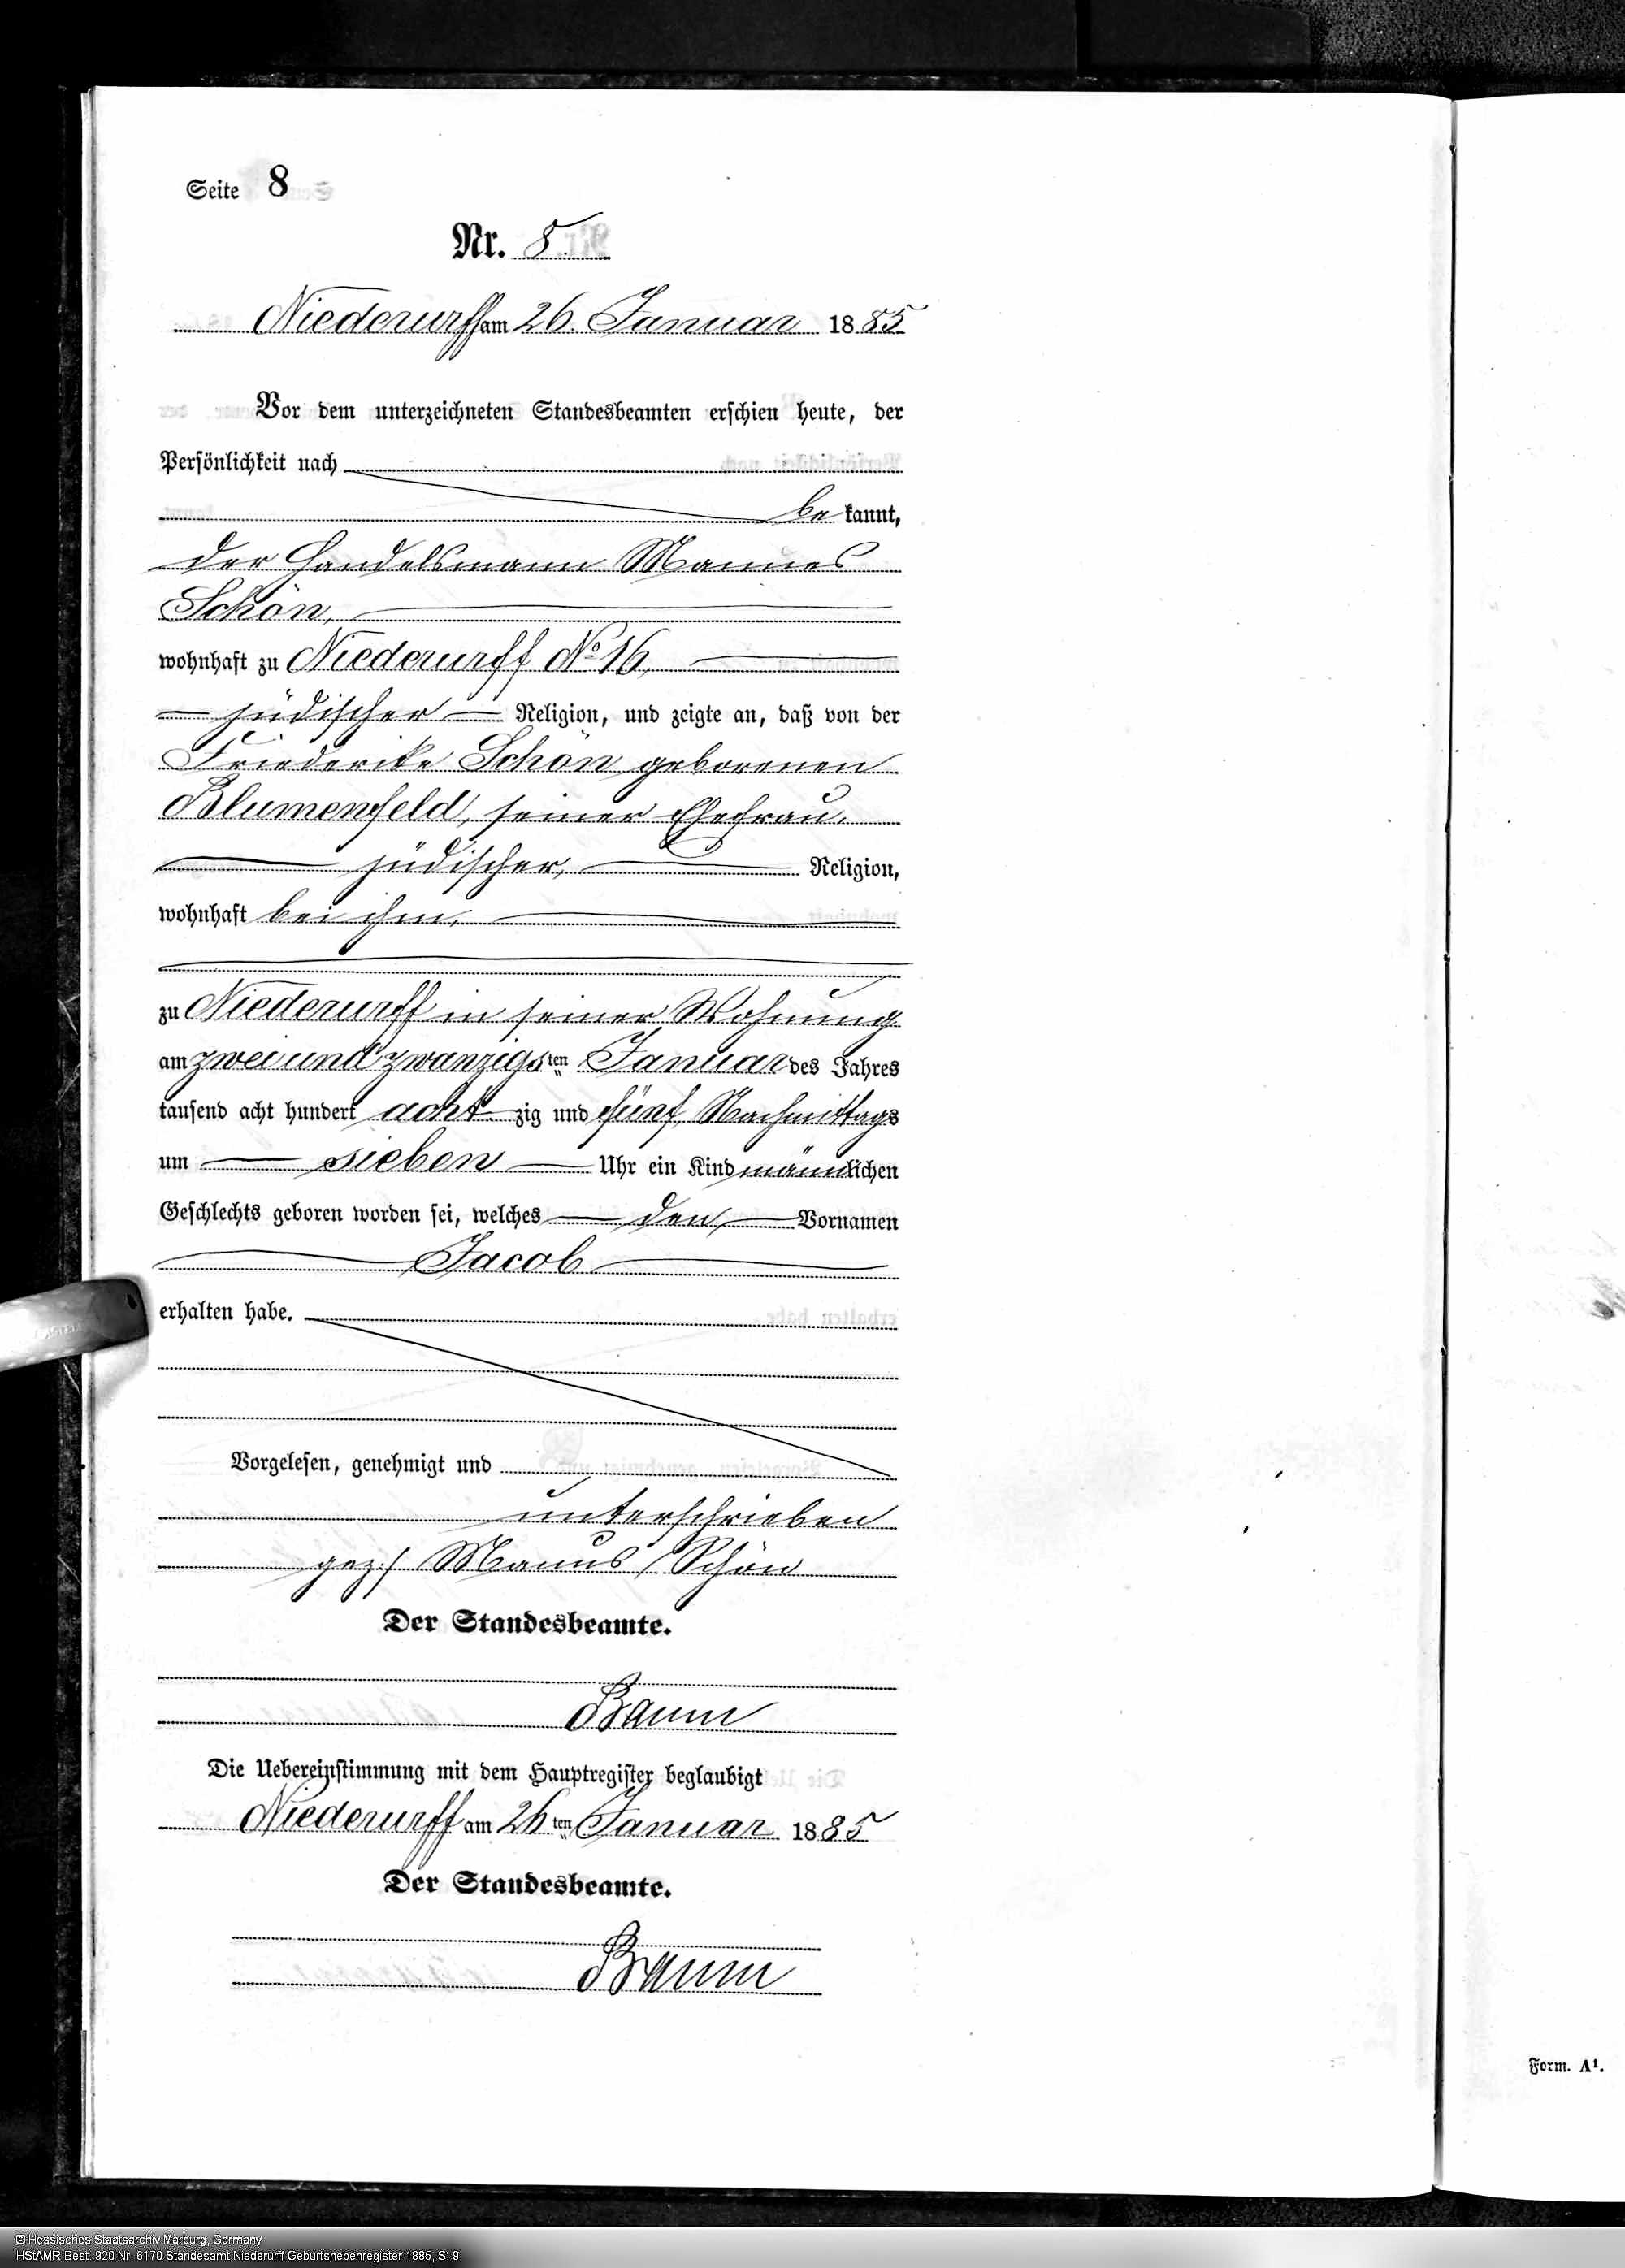 Seite 8
Nr. 8
Niederurff am 26. Januar 1885
Vor dem unterzeichneten Standesbeamten erschien heute, der
Persönlichkeit nach
be kannt,
der Handelsmann Mannes
Schön,
wohnhaft zu Niederurff No 16,
jüdischer Religion, und zeigte an, daß von der
Friederike Schön geborenen
Blumenfeld, seiner Ehefrau,
jüdischer, Religion,
wohnhaft bei ihm,
zu Niederurff in seiner Wohnung
am zwei und zwanzigsten Januar des Jahres
tausend acht hundert acht zig und fünf, Nachmittags
um sieben Uhr ein Kind männlichen
Geschlechts geboren worden sei, welches den Vornamen
Jacob
erhalten habe.
Vorgelesen, genehmigt und
unterschrieben
gez:/ Manus Schön
Der Standesbeamte.
Braun
Die Uebereinstimmung mit dem Hauptregister beglaubigt
Niederurff am 26ten Januar 1885
Der Standesbeamte.
Braun
Form. A1.
© Hessisches Staatsarchiv Marburg, Germany
HStAMR Best. 920 Nr. 6170 Standesamt Niederurff Geburtsnebenregister 1885, S. 9